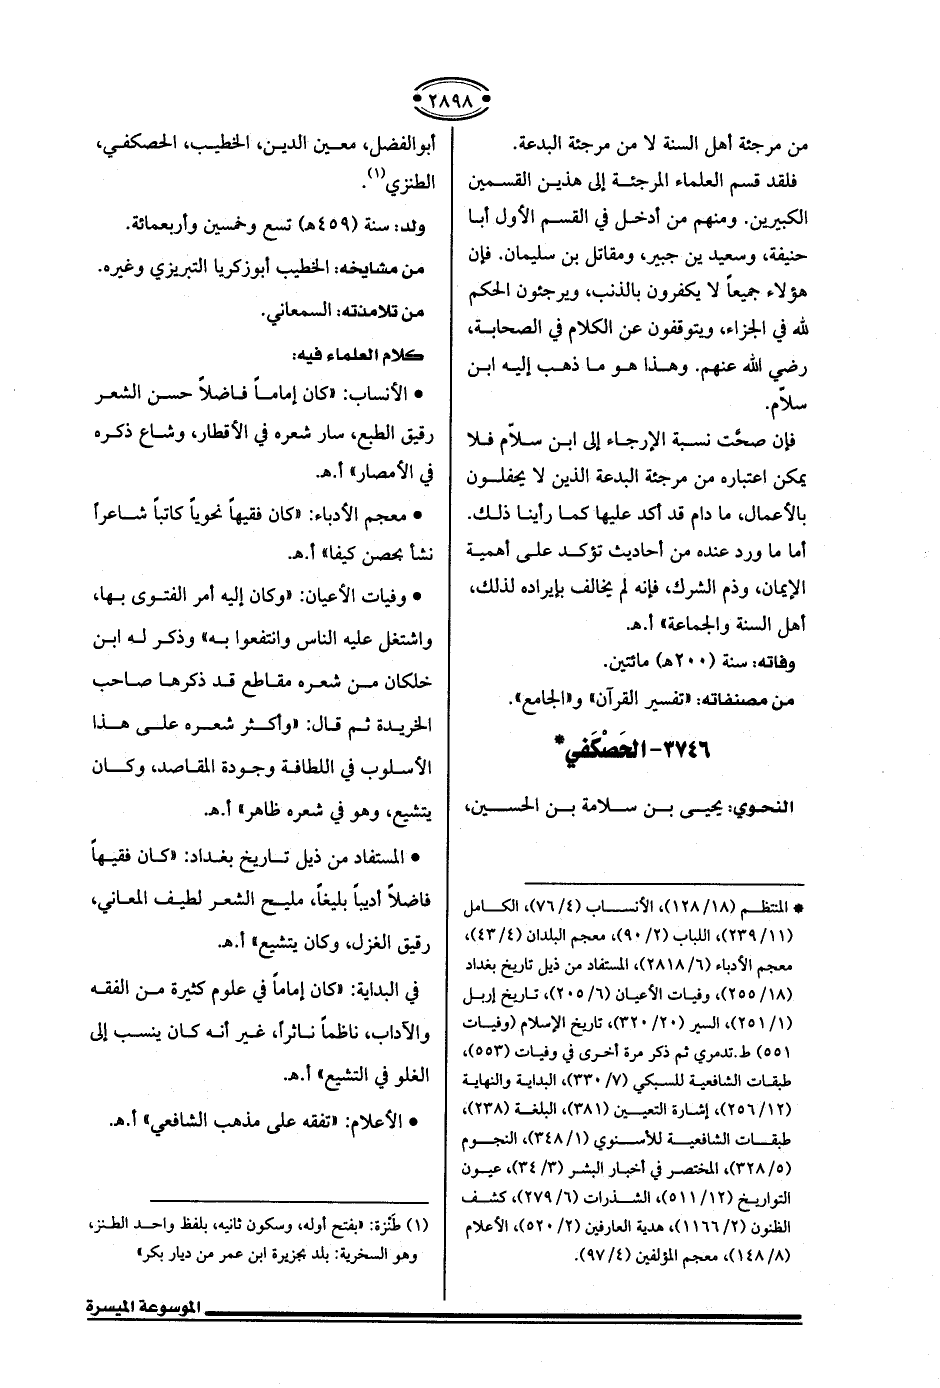 ٢٨٩٨
من مرجئة أهل السنة لا من مرجئة البدعة.
فلقد قسم العلماء المرجئة إلى هذين القسمين
الكبيرين. ومنهم من أدخل في القسم الأول أبا
حنيفة، وسعيد بن جبير، ومقاتل بن سليمان. فإن
هؤلاء جميعاً لا يكفرون بالذنب، ويرجئون الحكم
لله في الجزاء، ويتوقفون عن الكلام في الصحابة،
رضي الله عنهم. وهذا هو ما ذهب إليه ابن
سلاّم.
فإن صحَّت نسبة الإرجاء إلى ابن سلاّم فلا
يمكن اعتباره من مرجئة البدعة الذين لا يحفلون
بالأعمال، ما دام قد أكد عليها كما رأينا ذلك.
أما ما ورد عنده من أحاديث تؤكد على أهمية
الإيمان، وذم الشرك، فإنه لم يخالف بإيراده لذلك،
أهل السنة والجماعة» أ.هـ.
وفاته: سنة (٢٠٠هـ) مائتين.
من مصنفاته: «تفسير القرآن» و«الجامع».
٣٧٤٦- الحَصْكَفي*
النحوي: يحيى بن سلامة بن الحسين،
* المنتظم (١٢٨/١٨)، الأنساب (٧٦/٤)، الكامل
(٢٣٩/١١)، اللباب (٩٠/٢)، معجم البلدان (٤٣/٤)،
معجم الأدباء (٢٨١٨/٦)، المستفاد من ذيل تاريخ بغداد
(٢٥٥/١٨)، وفيات الأعيان (٢٠٥/٦)، تاريخ إربل
(٢٥١/١)، السير (٣٢٠/٢٠)، تاريخ الإسلام (وفيات
٥٥١) ط.تدمري ثم ذكر مرة أخرى في وفيات (٥٥٣)،
طبقات الشافعية للسبكي (٣٣٠/٧)، البداية والنهاية
(٢٥٦/١٢)، إشارة التعيين (٣٨١)، البلغة (٢٣٨)،
طبقات الشافعية للأسنوي (٣٤٨/١)، النجوم
(٣٢٨/٥)، المختصر في أخبار البشر (٣٤/٣)، عيون
التواريخ (٥١١/١٢)، الشذرات (٢٧٩/٦)، كشف
الظنون (١١٦٦/٢)، هدية العارفين (٥٢٠/٢)، الأعلام
(١٤٨/٨)، معجم المؤلفين (٩٧/٤).
أبوالفضل، معين الدين، الخطيب، الحصكفي،
الطنزي(١).
ولد: سنة (٤٥٩هـ) تسع وخمسين وأربعمائة.
من مشايخه: الخطيب أبوزكريا التبريزي وغيره.
من تلامذته: السمعاني.
كلام العلماء فيه:
• الأنساب: «كان إماماً فاضلاً حسن الشعر
رقيق الطبع، سار شعره في الأقطار، وشاع ذكره
في الأمصار» أ.هـ.
• معجم الأدباء: «كان فقيهاً نحوياً كاتباً شاعراً
نشأ بحصن كيفا» أ.هـ.
• وفيات الأعيان: «وكان إليه أمر الفتوى بها،
واشتغل عليه الناس وانتفعوا به» وذكر له ابن
خلكان من شعره مقاطع قد ذكرها صاحب
الخريدة ثم قال: «وأكثر شعره على هذا
الأسلوب في اللطافة وجودة المقاصد، وكان
يتشيع، وهو في شعره ظاهر» أ.هـ.
• المستفاد من ذيل تاريخ بغداد: «كان فقيهاً
فاضلاً أديباً بليغاً، مليح الشعر لطيف المعاني،
رقيق الغزل، وكان يتشيع» أ.هـ.
في البداية: «كان إماماً في علوم كثيرة من الفقه
والآداب، ناظماً ناثراً، غير أنه كان ينسب إلى
الغلو في التشيع» أ.هـ.
• الأعلام: «تفقه على مذهب الشافعي» أ.هـ.
(١) طَنْزة: «بفتح أوله، وسكون ثانيه، بلفظ واحد الطنز،
وهو السخرية: بلد بجزيرة ابن عمر من ديار بكر»
الموسوعة الميسرة